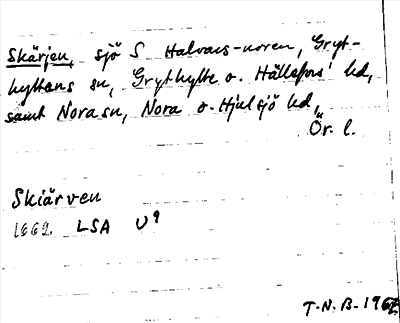 Skärjen, sjö S Halvars-noren, Gryt-
hyttans sn, Grythytte o. Hällefors' hd,
samt Nora sn, Nora o. Hjulsjö hd,
Ör. l.
Skiärven
1662. LSA U9
T.N.B-196